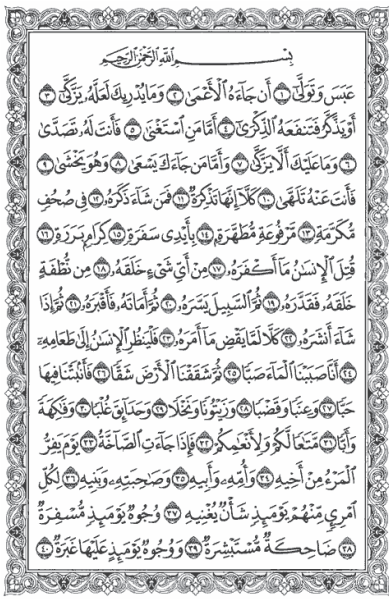 بِسْمِ اللَّهِ الرَّحْمَٰنِ الرَّحِيمِ
عَبَسَ وَتَوَلَّىٰٓ ١ أَن جَآءَهُ ٱلۡأَعۡمَىٰ ٢ وَمَا يُدۡرِيكَ لَعَلَّهُۥ يَزَّكَّىٰٓ ٣
أَوۡ يَذَّكَّرُ فَتَنفَعَهُ ٱلذِّكۡرَىٰٓ ٤ أَمَّا مَنِ ٱسۡتَغۡنَىٰ ٥ فَأَنتَ لَهُۥ تَصَدَّىٰ
٦ وَمَا عَلَيۡكَ أَلَّا يَزَّكَّىٰ ٧ وَأَمَّا مَن جَآءَكَ يَسۡعَىٰ ٨ وَهُوَ يَخۡشَىٰ ٩
فَأَنتَ عَنۡهُ تَلَهَّىٰ ١٠ كَلَّآ إِنَّهَا تَذۡكِرَةٞ ١١ فَمَن شَآءَ ذَكَرَهُۥ ١٢ فِي صُحُفٖ
مُّكَرَّمَةٖ ١٣ مَّرۡفُوعَةٖ مُّطَهَّرَةِۭ ١٤ بِأَيۡدِي سَفَرَةٖ ١٥ كِرَامِۭ بَرَرَةٖ ١٦
قُتِلَ ٱلۡإِنسَٰنُ مَآ أَكۡفَرَهُۥ ١٧ مِنۡ أَيِّ شَيۡءٍ خَلَقَهُۥ ١٨ مِن نُّطۡفَةٍ
خَلَقَهُۥ فَقَدَّرَهُۥ ١٩ ثُمَّ ٱلسَّبِيلَ يَسَّرَهُۥ ٢٠ ثُمَّ أَمَاتَهُۥ فَأَقۡبَرَهُۥ ٢١ ثُمَّ إِذَا
شَآءَ أَنشَرَهُۥ ٢٢ كَلَّا لَمَّا يَقۡضِ مَآ أَمَرَهُۥ ٢٣ فَلۡيَنظُرِ ٱلۡإِنسَٰنُ إِلَىٰ طَعَامِهِۦٓ
٢٤ أَنَّا صَبَبۡنَا ٱلۡمَآءَ صَبّٗا ٢٥ ثُمَّ شَقَقۡنَا ٱلۡأَرۡضَ شَقّٗا ٢٦ فَأَنۢبَتۡنَا فِيهَا
حَبّٗا ٢٧ وَعِنَبٗا وَقَضۡبٗا ٢٨ وَزَيۡتُونٗا وَنَخۡلٗا ٢٩ وَحَدَآئِقَ غُلۡبٗا ٣٠ وَفَٰكِهَةٗ
وَأَبّٗا ٣١ مَّتَٰعٗا لَّكُمۡ وَلِأَنۡعَٰمِكُمۡ ٣٢ فَإِذَا جَآءَتِ ٱلصَّآخَّةُ ٣٣ يَوۡمَ يَفِرُّ
ٱلۡمَرۡءُ مِنۡ أَخِيهِ ٣٤ وَأُمِّهِۦ وَأَبِيهِ ٣٥ وَصَٰحِبَتِهِۦ وَبَنِيهِ ٣٦ لِكُلِّ
ٱمۡرِيٕٖ مِّنۡهُمۡ يَوۡمَئِذٖ شَأۡنٞ يُغۡنِيهِ ٣٧ وُجُوهٞ يَوۡمَئِذٖ مُّسۡفِرَةٞ
٣٨ ضَاحِكَةٞ مُّسۡتَبۡشِرَةٞ ٣٩ وَوُجُوهٞ يَوۡمَئِذٍ عَلَيۡهَا غَبَرَةٞ ٤٠